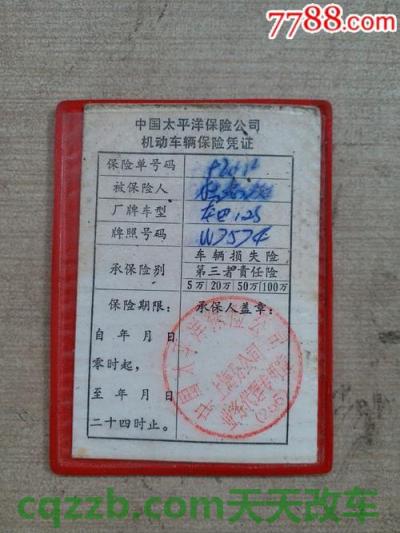 7788.com
中国太平洋保险公司
机动车辆保险凭证
保险单号码
被保险人
厂牌车型 125
牌照号码 W7574
承保险别 车辆损失险
第三者责任险
5万 20万 50万 100万
保险期限： 承保人盖章：
自 年 月 日
零时起，
至 年 月 日
二十四时止。
中国太平洋保险公司
cqzzb.com天天改车